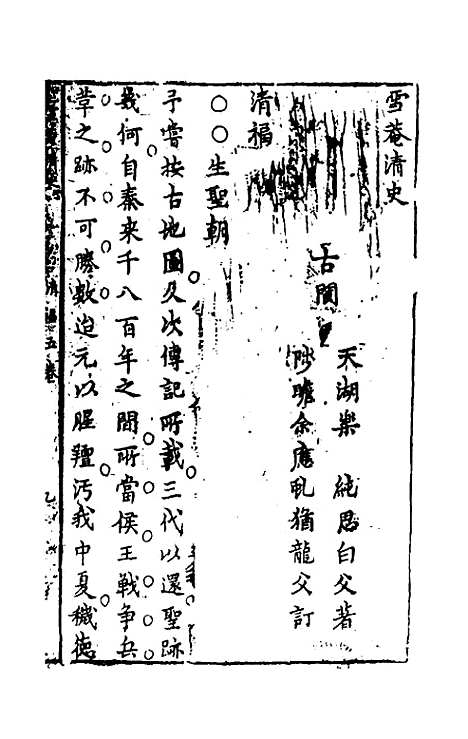 雪菴清史
古閩
天湖樂純思白父著
余應虬猶龍父訂
清福
○○生聖朝
予嘗按古地圖及次傳記所載三代以還聖跡
幾何自秦來千八百年之間所當侯王戰爭兵
革之跡不可勝數迨元以腥羶污我中夏穢德